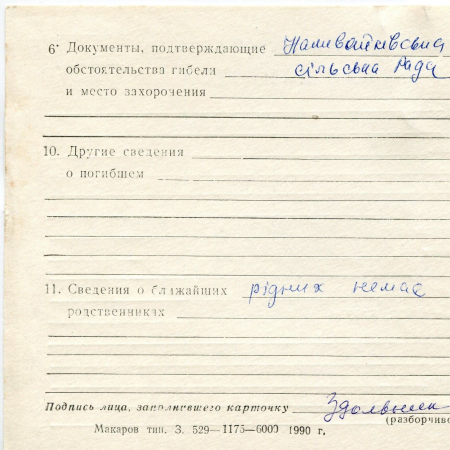 6· Документы, подтверждающие Наливайківська
обстоятельства гибели сільська Рада
и место захорочения
10. Другие сведения
о погибшем
11. Сведения о ближайших рідних немає
родственниках
Подпись лица, заполнившего карточку
(разборчиво
Макаров тип. З. 529—1175—6000 1990 г.